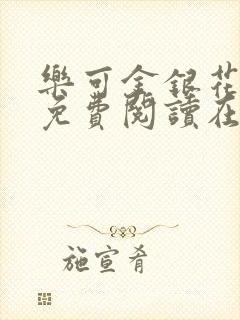 樂可金銀花
免費閱讀在
施宣肴